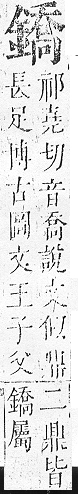 鐈
祁堯切音喬說文似鼎
長足博古圖文王子父
二鼎皆
鐈屬